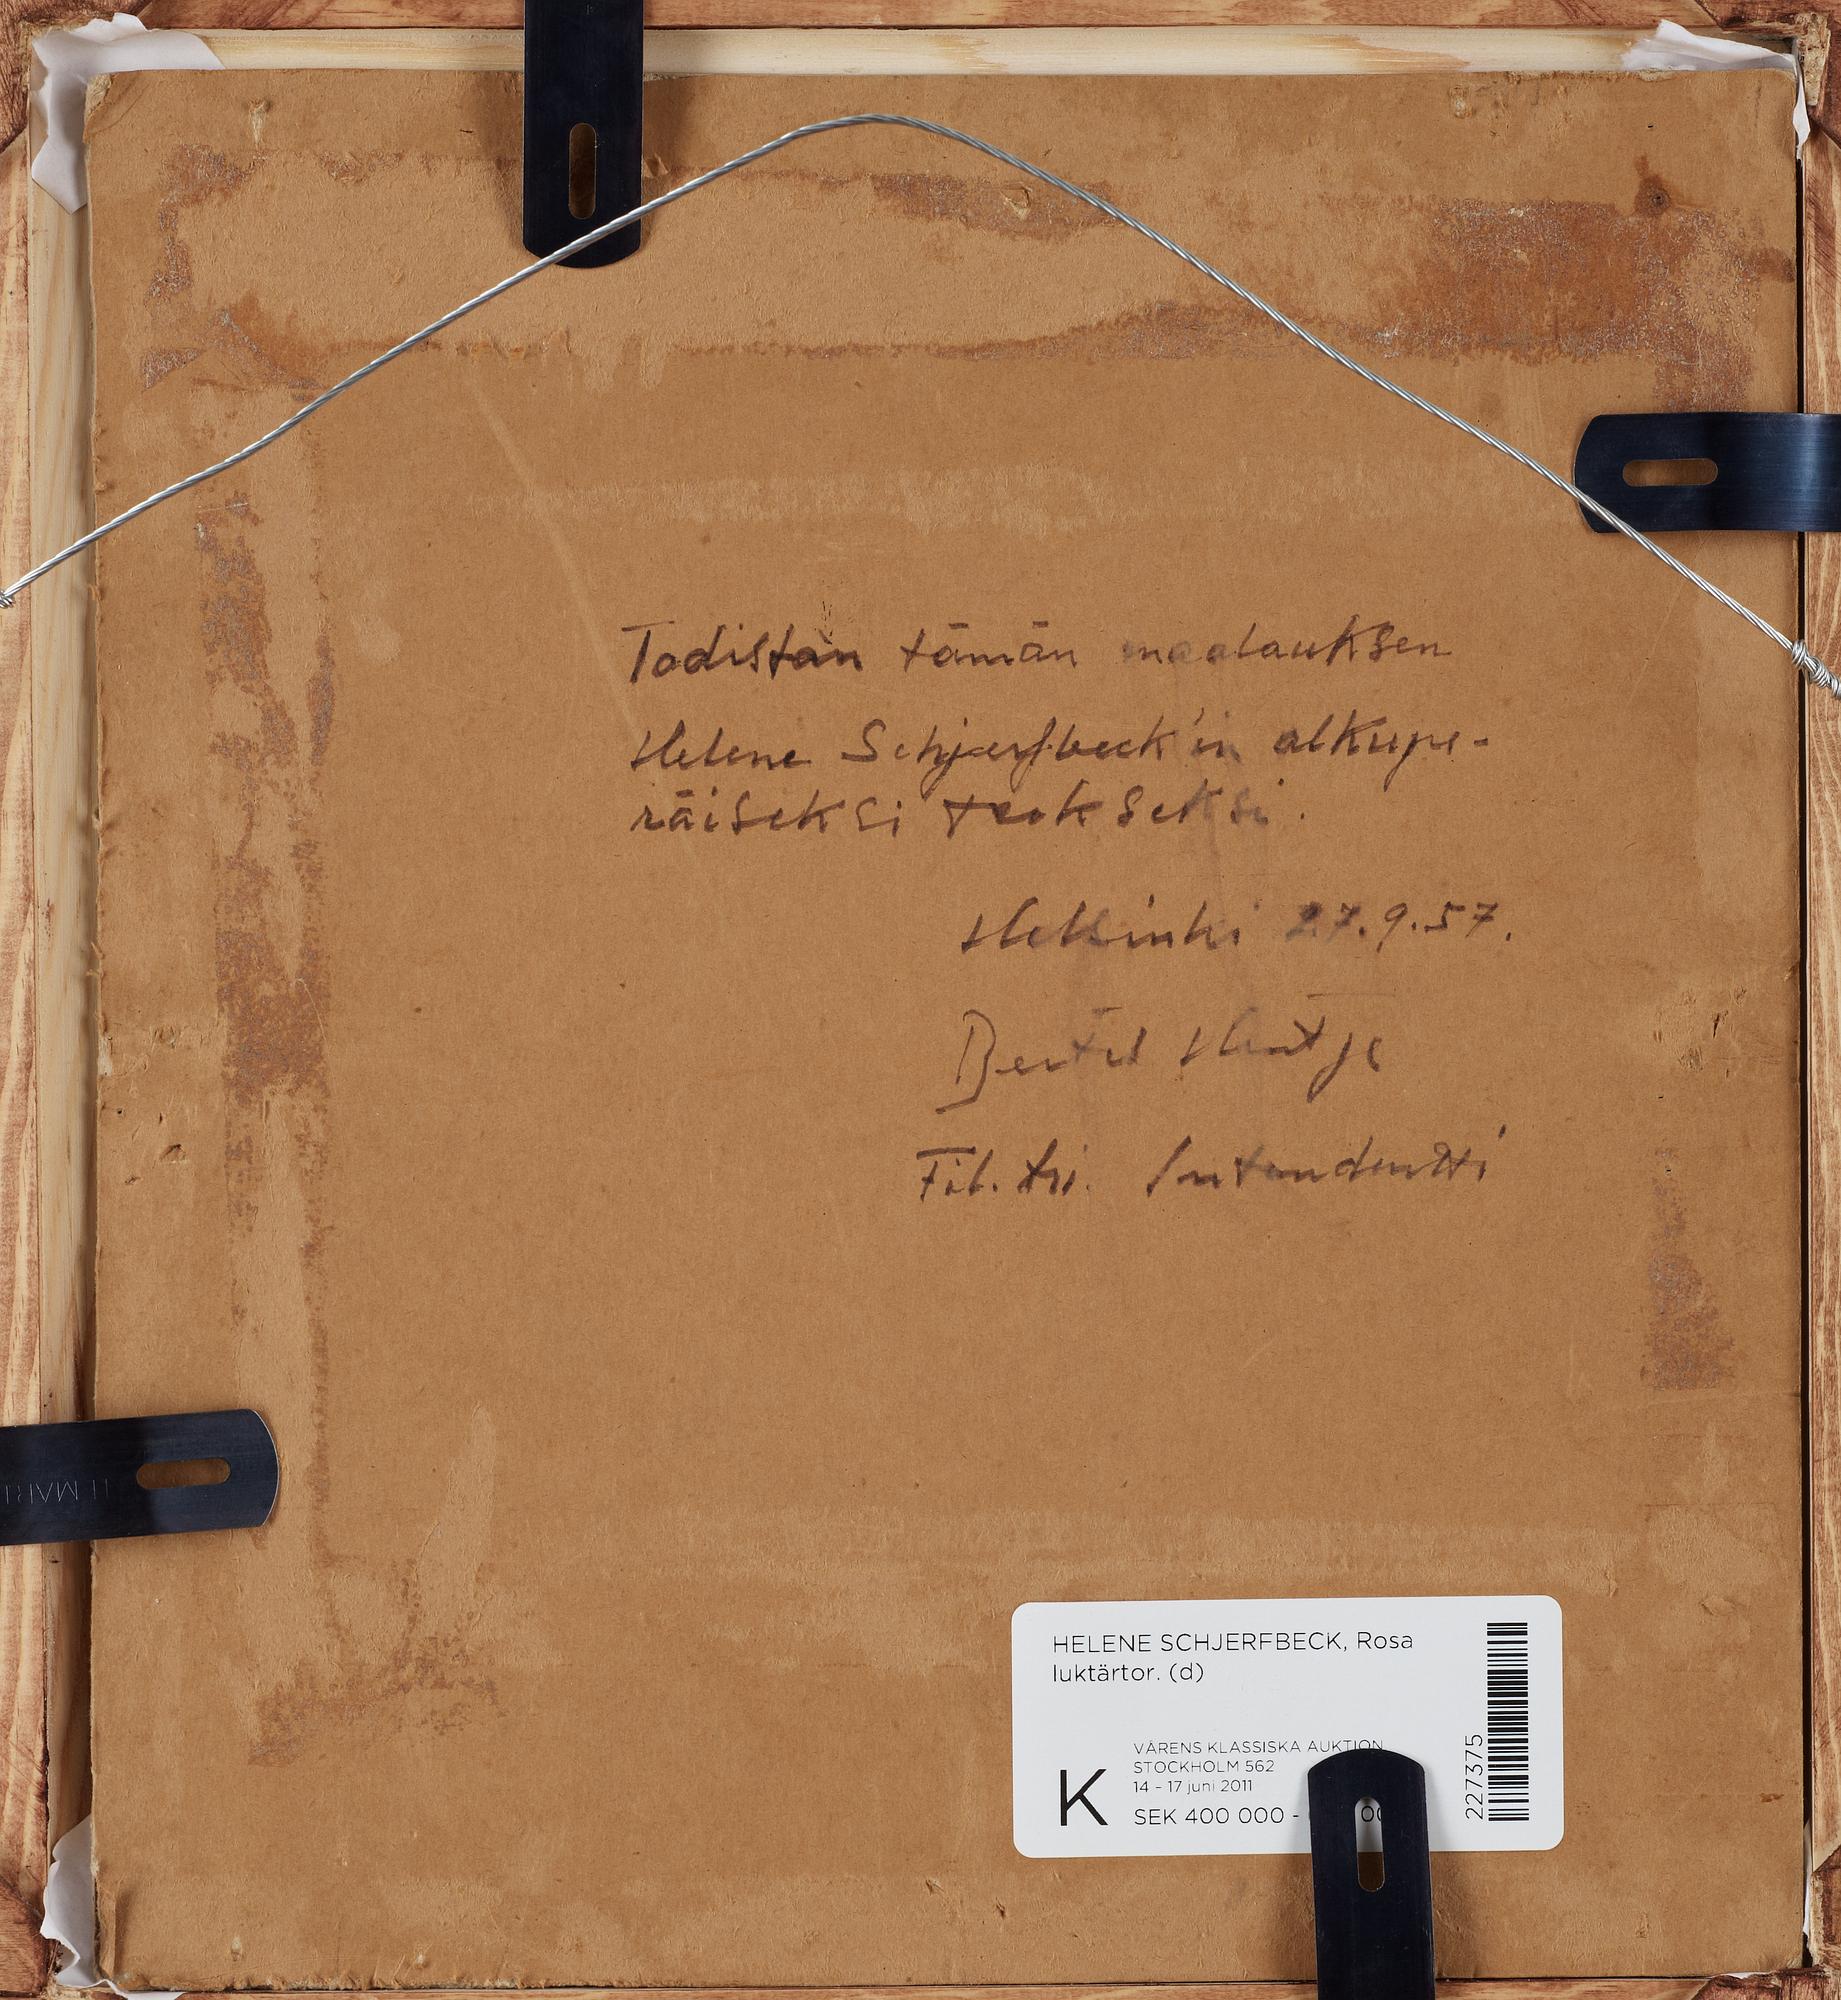 Todistan tämän maalauksen
Helene Schjerfbeck'in alkupe-
räiseksi teokseksi.
Helsinki 27.9.57.
Bertel Hintze
Fil. tri. Intendentti
HELENE SCHJERFBECK, Rosa
luktärtor. (d)
K
VÅRENS KLASSISKA AUKTION
STOCKHOLM 562
14 - 17 juni 2011
SEK 400 000 -
227375